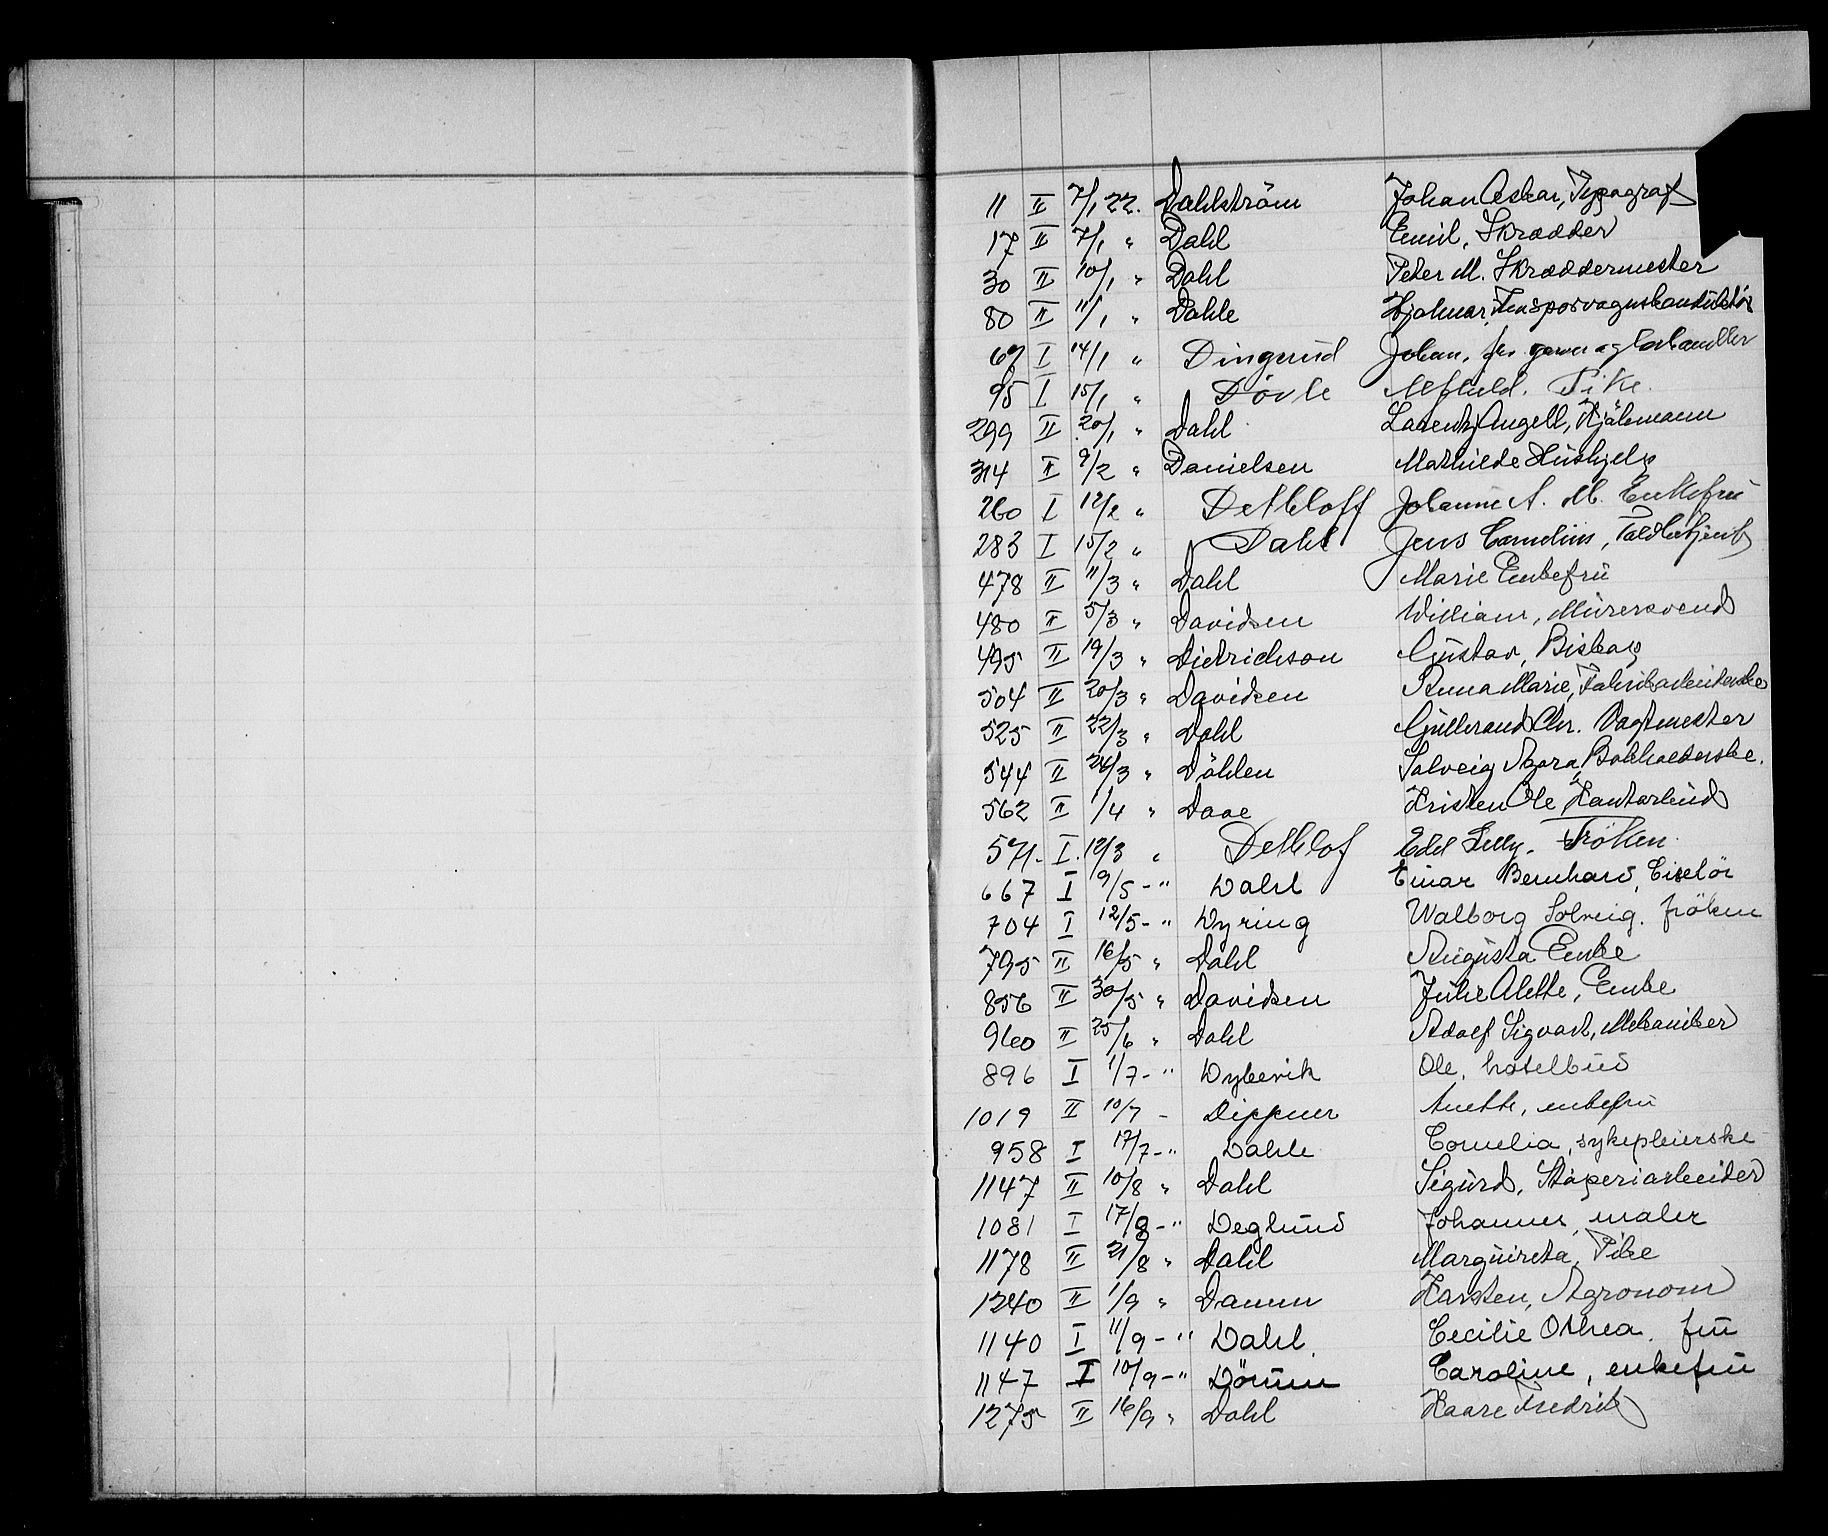 11 II 7/1 22. Dahlström Johan Oskar, Typograf
17 II 7/1 " Dahl Emil, Skrædder
30 II 10/1 " Dahl Peter M. Skræddermester
80 II 11/1 " Dahle Hjalmar,
67 I 14/1 " Dingsrud Johan,
95 I 15/1 " Dövle Pike.
299 II 20/1 " Dahl Lorentz Angell, Hjälemann
314 II 9/2 " Danielsen Mathilde Hushjelp
260 I 12/2 " Dethloff Johanne A. M. Enkefru
283 I 15/2 " Dahl Jens Cornelius, Toldbetjent
478 II 11/3 " Dahl Marie Enkefru
480 II 5/3 " Davidsen William, Murersvend
495 II 19/3 " Dietrichson Gustav, Biskop
504 II 20/3 " Davidsen Anna Marie, Fabrikarbeiderske
525 II 22/3 " Dahl Gulbrand Chr. Vagtmester
544 II 24/3 " Döhlen Solveig Bokholderske.
562 II 1/4 " Daae Kristen Ole Kontorbud
571. I. 12/3 " Dethlof Edel Lilly. Fröken.
667 I 9/5 - " Dahl Einar Bernhard, Ciselör
704 I 12/5 - " Dyring Walborg Solveig. fröken
795 II 16/5 " Dahl Augusta Enke
856 II 30/5 " Davidsen Julie Alette, Enke
960 II 25/6 " Dahl Adolf Sigvart, Mekaniker
896 I 1/7 - " Dybevik Ole, hotelbud
1019 II 10/7 - Dippner Anette, enkefru
958 I 17/7 - " Dahle Cornelia, sykepleierske
1147 II 10/8 " Dahl Sigurd, Støperiarbeider
1081 I 17/8 - " Deglund Johannes, maler
1178 II 21/8 " Dahl Marguireta, Pike
1240 II 1/9 " Damm Karsten, Agronom
1140 I 11/9 - " Dahl. Cecilie Othea. fru
1147 I 10/9 - " Dörum Caroline, enkefru
1275 II 16/9 " Dahl Kaare Fredrik